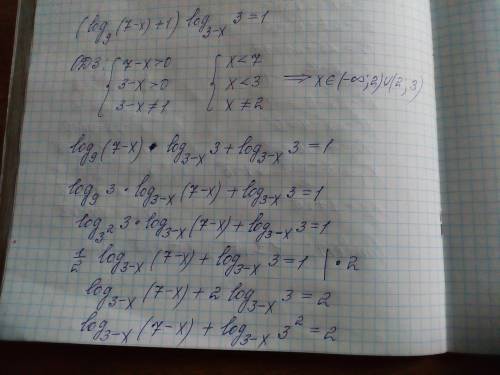 (log₉(7-x)+1) log₃₋ₓ 3 = 1
ОДЗ: { 7-x>0 { x<7
3-x>0 x<3 ⟹ x∈(-∞;2)∪(2;3)
3-x≠1 x≠2
log₉(7-x) • log₃₋ₓ 3 + log₃₋ₓ 3 = 1
log₉ 3 • log₃₋ₓ(7-x) + log₃₋ₓ 3 = 1
log₃² 3 • log₃₋ₓ(7-x) + log₃₋ₓ 3 = 1
1/2 log₃₋ₓ(7-x) + log₃₋ₓ 3 = 1 | • 2
log₃₋ₓ(7-x) + 2 log₃₋ₓ 3 = 2
log₃₋ₓ(7-x) + log₃₋ₓ 3² = 2